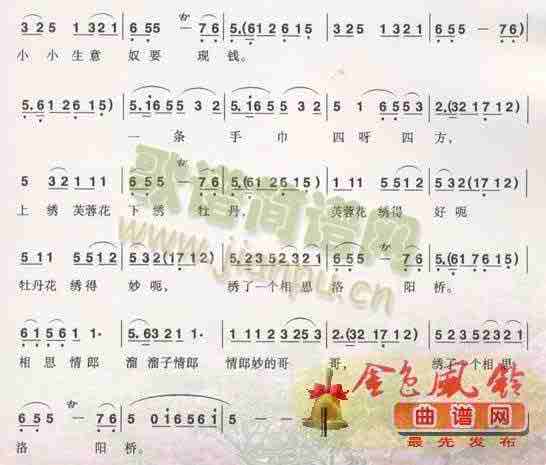 3 2 5 1 3 2 1 | 6 5 5 - 7 6 | 5.(6 1 2 6 1 5 | 3 2 5 1 3 2 1 | 6 5 5 - 7 6)
小 小 生 意 奴 要 现 钱。
5.6 1 2 6 1 5) | 5.1 6 5 5 3 2 | 5.1 6 5 5 3 2 | 5 1 6 5 5 3 | 2.(3 2 1 7 1 2)
一 条 手 巾 四 呀 四 方,
5 3 2 1 1 1 | 6 5 5 - 7 6 | 5.(6 1 2 6 1 5) | 1 1 1 5 5 1 2 | 5 3 2 (1 7 1 2)
上 绣 芙蓉花 下 绣 牡 丹, 芙蓉花 绣得 好 呃
5 1 1 1 5 5 1 | 5 3 2 (1 7 1 2) | 5.2 3 5 2 3 2 1 | 6 5 5 - 7 6 | 5.(6 1 7 6 1 5)
牡丹花 绣得 妙 呃, 绣了一个相思 洛 阳 桥。
6 1 5 6 1 1· | 5.6 3 2 1 2 1 1· | 1 1 1 2 3 2 5 3 | 2.(3 2 1 7 1 2) | 5 2 3 5 2 3 2 1
相 思 情 郎 溜 溜子情郎 情郎妙的哥 哥, 绣了一个相思
6 5 5 - 7 6 | 5 0 1 6 5 6 1 | 5 - -
洛 阳 桥。
歌谱简谱网
www.jianpu.cn
金色风铃
曲谱网
最先发布